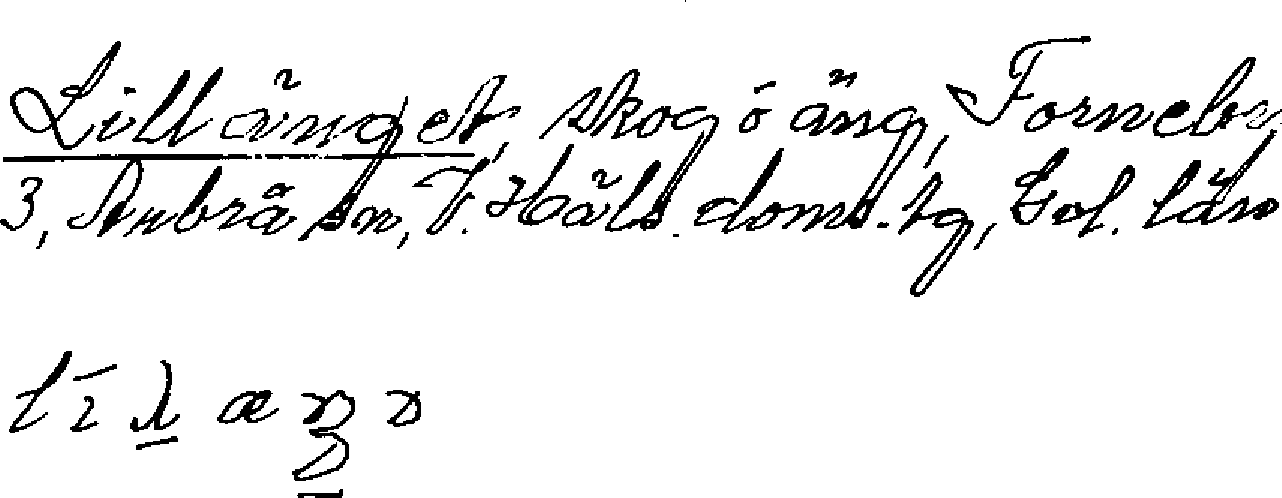 Lillänget, skog ó äng, Fornebo
3, Arbrå sn, V. Häls. doms. tg, Gvl. län